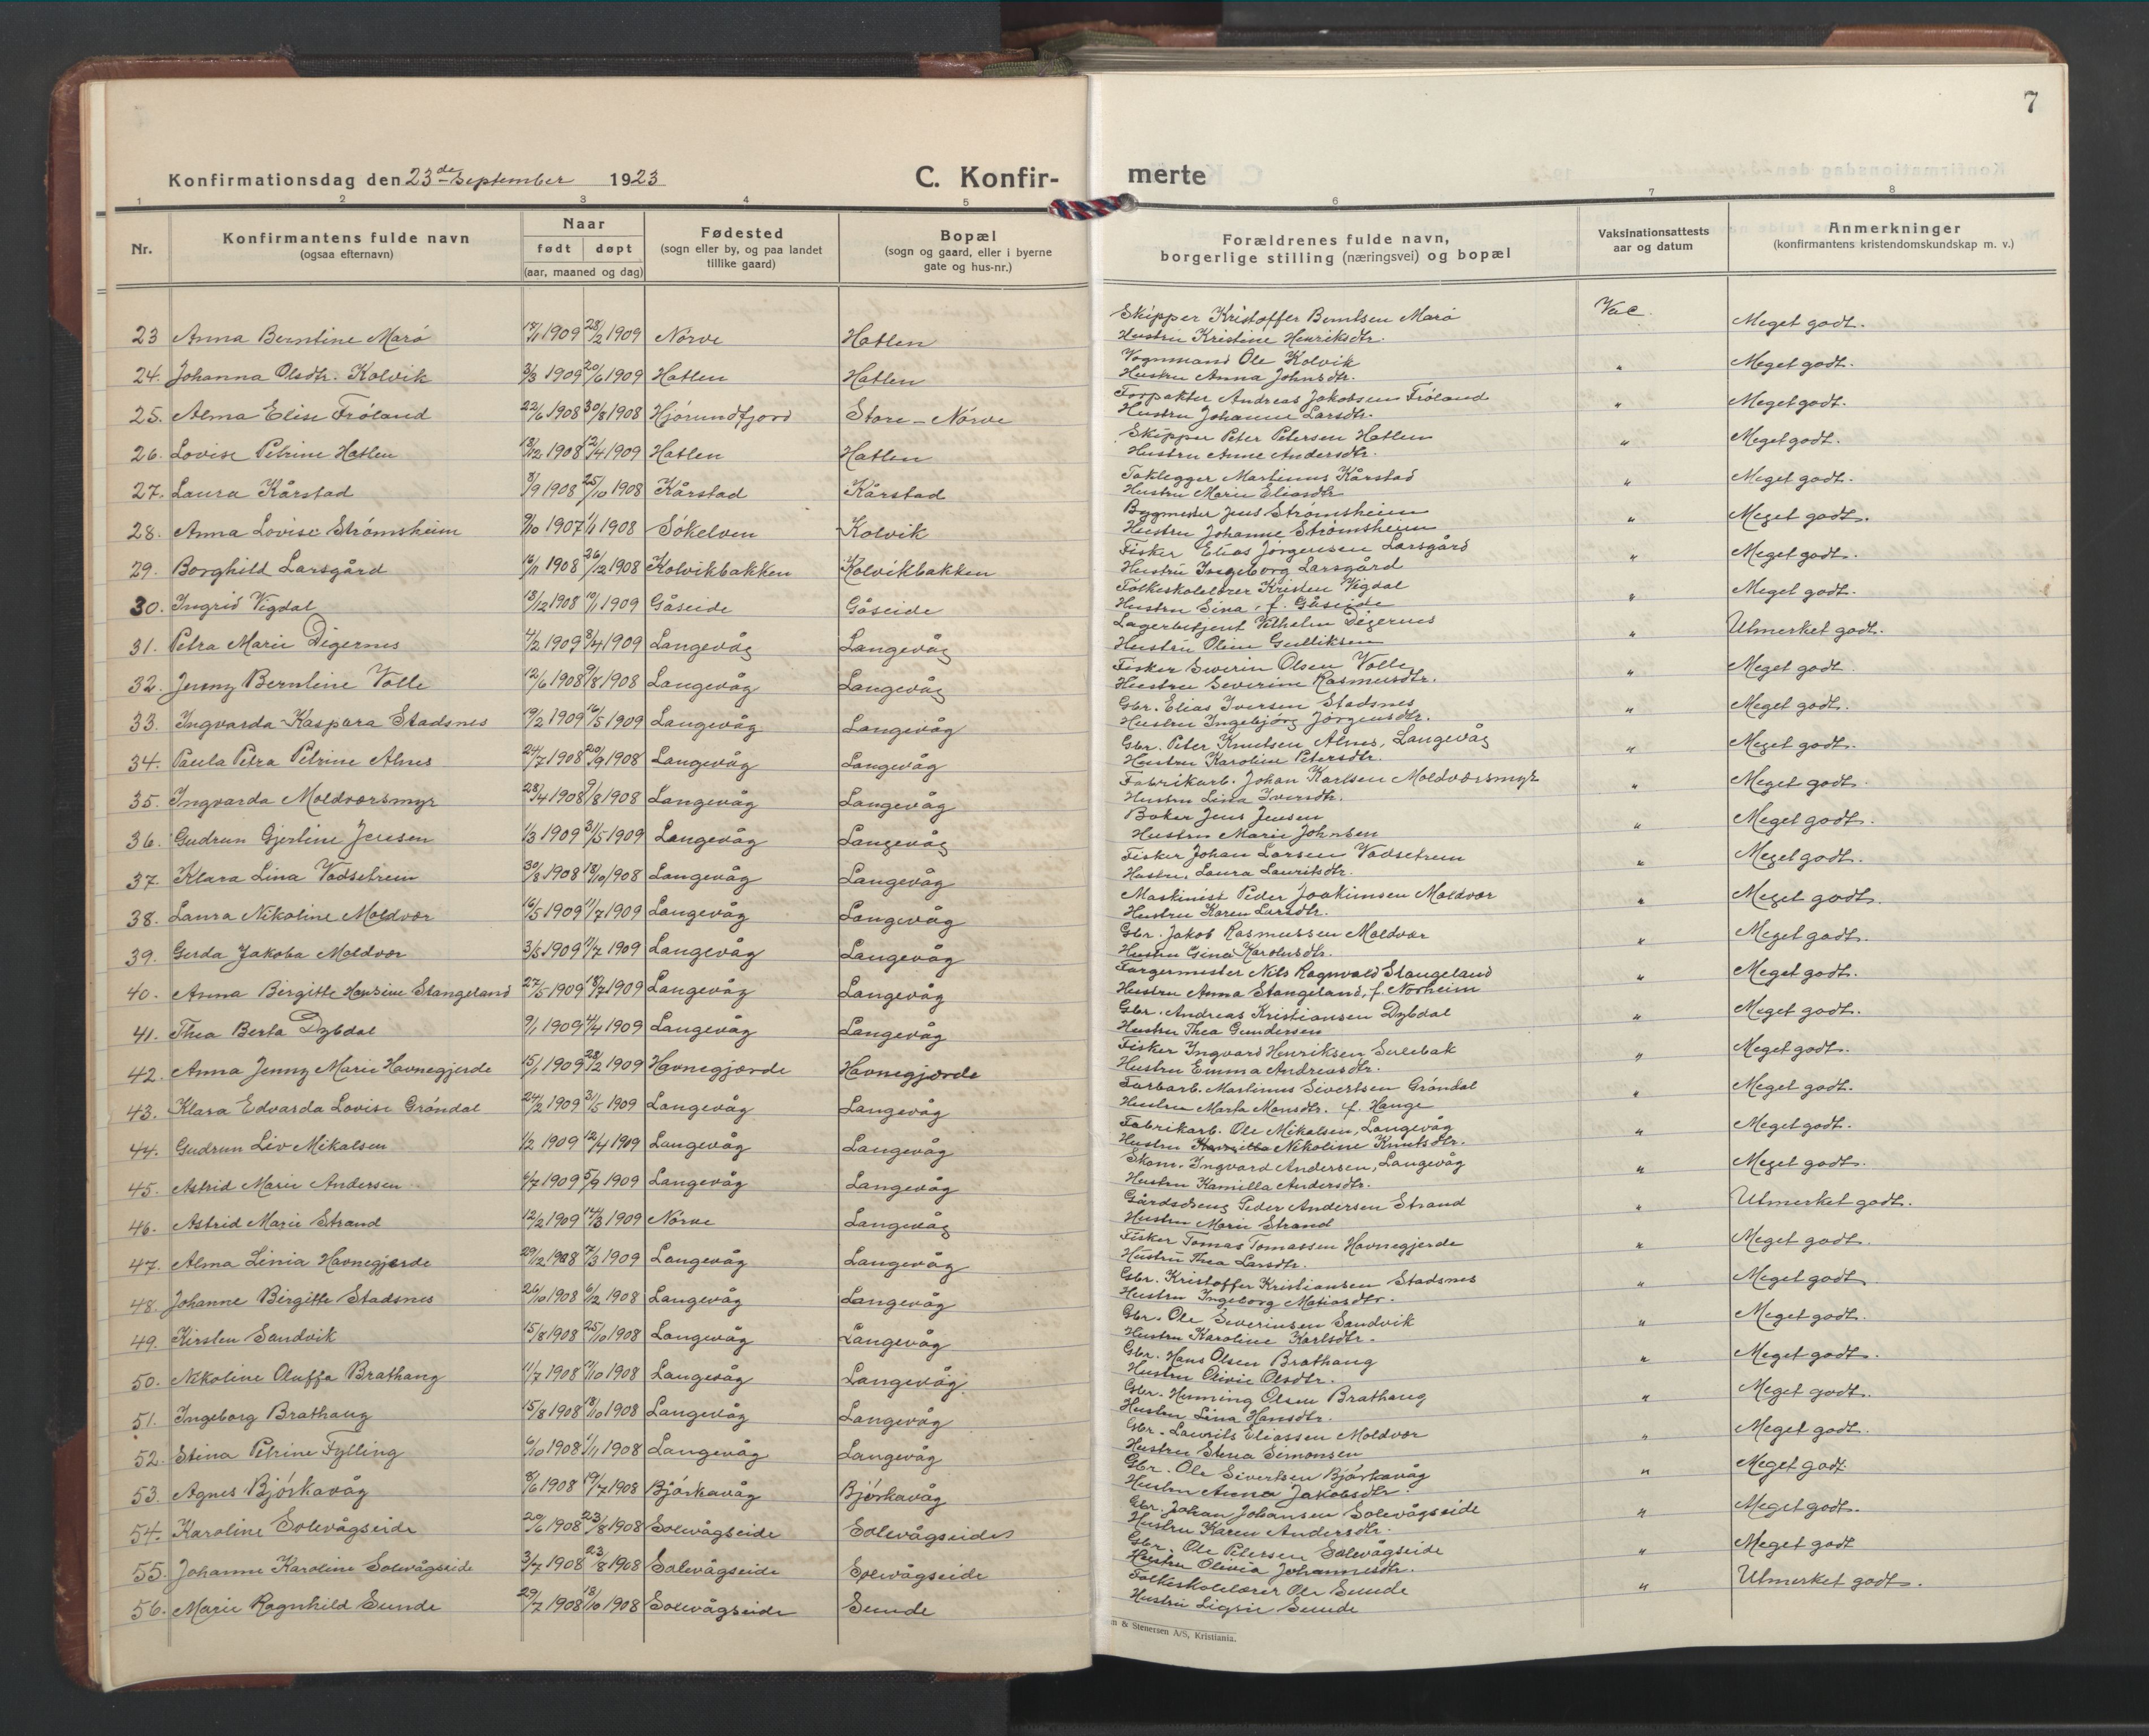 7
Konfirmationsdag den 23de September 1923 C. Konfir- merte
1 2 3 4 5 6 7 8
Nr. Konfirmantens fulde navn (ogsaa efternavn) Naar født døpt (aar, maaned og dag) Fødested (sogn eller by, og paa landet tillike gaard) Bopæl (sogn og gaard, eller i byerne gate og hus-nr.) Forældrenes fulde navn, borgerlige stilling (næringsvei) og bopæl Vaksinationsattests aar og datum Anmerkninger (konfirmantens kristendomskundskap m. v.)
23 Anna Berntine Marø 18/1 1909 28/2 1909 Nørve Hatlen Skipper Kristoffer Berntsen Marø Hustru Kristine Henriksdtr. Vac. Meget godt.
24. Johanna Olsdtr. Kolvik 3/3 1909 20/6 1909 Hatlen Hatlen Vognmand Ole Kolvik Hustru Anna Johnsdtr. " Meget godt.
25. Alma Elise Frøland 22/6 1908 30/8 1908 Hjørundfjord Store-Nørve Forpakter Andreas Jakobsen Frøland Hustru Johanne Larsdtr. " Meget godt.
26. Lovise Petrine Hatlen 13/12 1908 12/4 1909 Hatlen Hatlen Skipper Peter Petersen Hatlen Hustru Anne Andersdtr. " Meget godt.
27. Laura Kårstad 8/9 1908 25/10 1908 Kårstad Kårstad Taklegger Martinus Kårstad Hustru Marie Eliasdtr " Meget godt.
28. Anna Lovise Strømsheim 9/10 1907 1/1 1908 Søkelven Kolvik Bygmester Jens Strømsheim Hustru Johanne Strømsheim " Meget godt.
29. Borghild Larsgård 16/11 1908 26/12 1908 Kolvikbakken Kolvikbakken Fisker Elias Jørgensen Larsgård Hustru Ingeborg Larsgård " Meget godt.
30. Ingrid Vigdal 13/12 1908 10/1 1909 Gåseide Gåseide Folkeskolelærer Kristen Vigdal Hustru Sina, f. Gåseide " Meget godt.
31. Petra Marie Digernes 4/2 1909 8/4 1909 Langevåg Langevåg Lagerbetjent Vilhelm Digernes Hustru Oline Gulliksen " Utmerket godt.
32. Jenny Berntine Volle 12/6 1908 9/8 1908 Langevåg Langevåg Fisker Severin Olsen Volle Hustru Severine Rasmusdtr. " Meget godt.
33. Ingvarda Kaspara Stadsnes 19/2 1909 16/5 1909 Langevåg Langevåg Gbr. Elias Iversen Stadsnes Hustru Ingebjørg Jørgensdtr. " Meget godt.
34. Paula Petra Petrine Alnes 24/7 1908 20/9 1908 Langevåg Langevåg Gbr. Peter Knutsen Alnes, Langevåg Hustru Karoline Petersdtr. " Meget godt.
35. Ingvarda Moldværsmyr 28/4 1908 9/8 1908 Langevåg Langevåg Fabrikarb. Johan Karlsen Moldværsmyr Hustru Lina Iversdtr. " Meget godt.
36. Gudrun Gjertine Jensen 1/3 1909 31/5 1909 Langevåg Langevåg Baker Jens Jensen Hustru Marie Johnsen " Meget godt.
37. Klara Lina Vadsetrem 30/8 1908 18/10 1908 Langevåg Langevåg Fisker Johan Larsen Vadsetrem Hustru Laura Lauritsdtr. " Meget godt.
38. Laura Nikoline Moldvær 16/5 1909 11/7 1909 Langevåg Langevåg Maskinist Peder Joakimsen Moldvær Hustru Karen Larsdtr. " Meget godt.
39. Gerda Jakoba Moldvær 3/5 1909 11/7 1909 Langevåg Langevåg Gbr. Jakob Rasmussen Moldvær Hustru Gina Karolusdtr. " Meget godt.
40. Anna Birgitte Hansine Stangeland 27/5 1909 18/7 1909 Langevåg Langevåg Fargermester Nils Ragnvald Stangeland Hustru Anna Stangeland, f. Norheim " Meget godt.
41. Thea Berta Dybdal 9/1 1909 4/4 1909 Langevåg Langevåg Gbr. Andreas Kristiansen Dybdal Hustru Thea Gundersen " Meget godt.
42. Anna Jenny Marie Havnegjerde 15/1 1909 28/2 1909 Havnegjærde Havnegjærde Fisker Ingvard Henriksen Sulebak Hustru Emma Andreasdtr. " Meget godt.
43. Klara Edvarda Lovise Grøndal 24/2 1909 31/5 1909 Langevåg Langevåg Farbarb. Martinus Sivertsen Grøndal Hustru Marta Monsdtr. f. Hauge " Meget godt.
44. Gudrun Liv Mikalsen 1/2 1909 12/4 1909 Langevåg Langevåg Fabrikarb. Ole Mikalsen, Langevåg Hustru Nikoline Knutsdtr. " Meget godt.
45. Astrid Marie Andersen 6/7 1909 5/9 1909 Langevåg Langevåg Skom. Ingvard Andersen, Langevåg Hustru Kamilla Andersdtr. " Meget godt.
46. Astrid Marie Strand 12/2 1909 14/3 1909 Nørve Langevåg Gårdsdreng Peder Andersen Strand Hustru Marie Strand " Utmerket godt.
47. Alma Linia Havnegjerde 29/12 1908 7/3 1909 Langevåg Langevåg Fisker Tomas Tomassen Havnegjerde Hustru Thea Larsdtr. " Meget godt.
48. Johanne Birgitte Stadsnes 26/10 1908 6/12 1908 Langevåg Langevåg Gbr. Kristoffer Kristiansen Stadsnes Hustru Ingeborg Matiasdtr. " Meget godt.
49. Kirsten Sandvik 15/8 1908 25/10 1908 Langevåg Langevåg Gbr. Ole Severinsen Sandvik Hustru Karoline Karlsdtr. " Meget godt.
50. Nikoline Oluffa Brathaug 11/7 1908 11/10 1908 Langevåg Langevåg. Gbr. Hans Olsen Brathaug Hustru Olivie Olsdtr. " Meget godt.
51. Ingeborg Brathaug 15/8 1908 18/10 1908 Langevåg Langevåg Gbr. Henning Olsen Brathaug Hustru Lina Hansdtr. " Meget godt.
52. Stina Petrine Fylling 6/10 1908 1/11 1908 Langevåg Langevåg Gbr. Laurits Eliassen Moldvær Hustru Stena Simonsen " Meget godt.
53. Agnes Bjørkavåg 8/6 1908 19/7 1908 Bjørkavåg Bjørkavåg Gbr. Ole Sivertsen Bjørkavåg Hustru Anna Jakobsdtr. " Meget godt.
54. Karoline Solevågseide 20/6 1908 23/8 1908 Solevågseide Solevågseide Gbr. Johan Johansen Solevågseide Hustru Karen Andersdtr. " Meget godt.
55. Johanne Karoline Solevågseide 3/7 1908 23/8 1908 Solevågseide Solevågseide Gbr. Ole Petersen Solevågseide Hustru Olivia Johannesdtr. " Meget godt
56. Marie Ragnhild Sunde 29/7 1908 18/10 1908 Solevågseide Sunde Folkeskolelærer Ole Sunde Hustru Ligsie Sunde " Utmerket godt.
& Stenersen A/S, Kristiania.